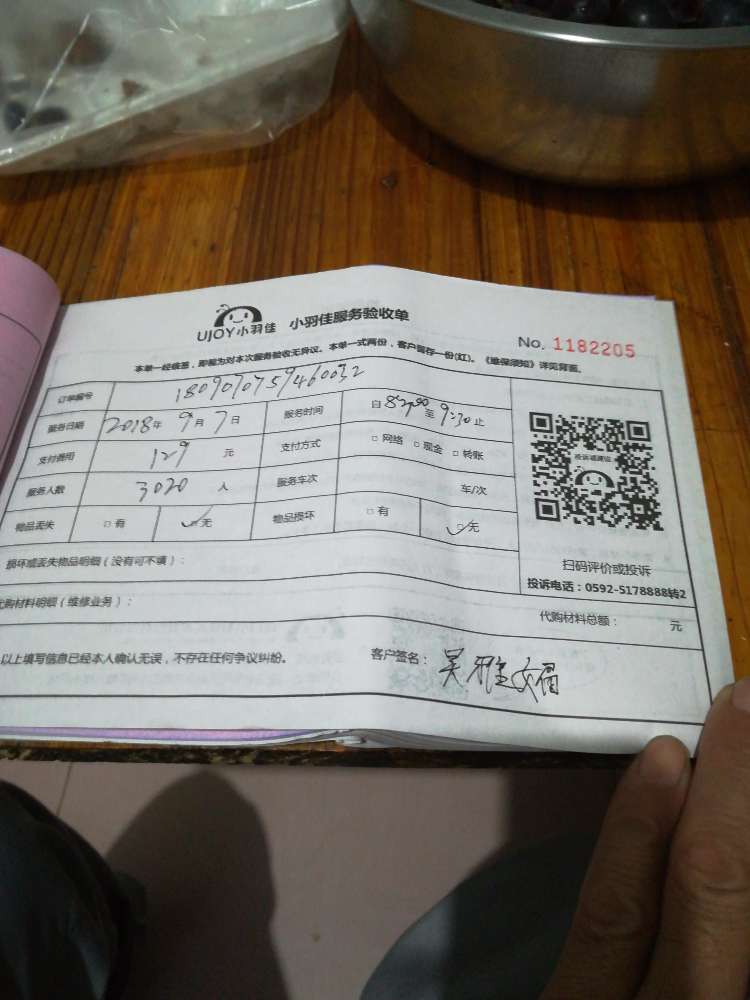 UJOY小羽佳 小羽佳服务验收单
No. 1182205
本单一经核签，即视为对本次服务验收无异议。本单一式两份，客户留存一份(红)。《维保须知》详见背面。
订单编号 1809070759460032
服务日期 2018年 9月 7日 服务时间 自 至 9:30 止
支付费用 129 元 支付方式 □ 网络 □ 现金 □ 转账
服务人数 3020 人 服务车次 车/次
物品丢失 □ 有 □ 无 物品损坏 □ 有 □ 无
扫码评价或投诉
投诉电话：0592-5178888转2
损坏或丢失物品明细（没有可不填）：
代购材料明细（维修业务）： 代购材料总额： 元
以上填写信息已经本人确认无误，不存在任何争议纠纷。 客户签名：吴雅